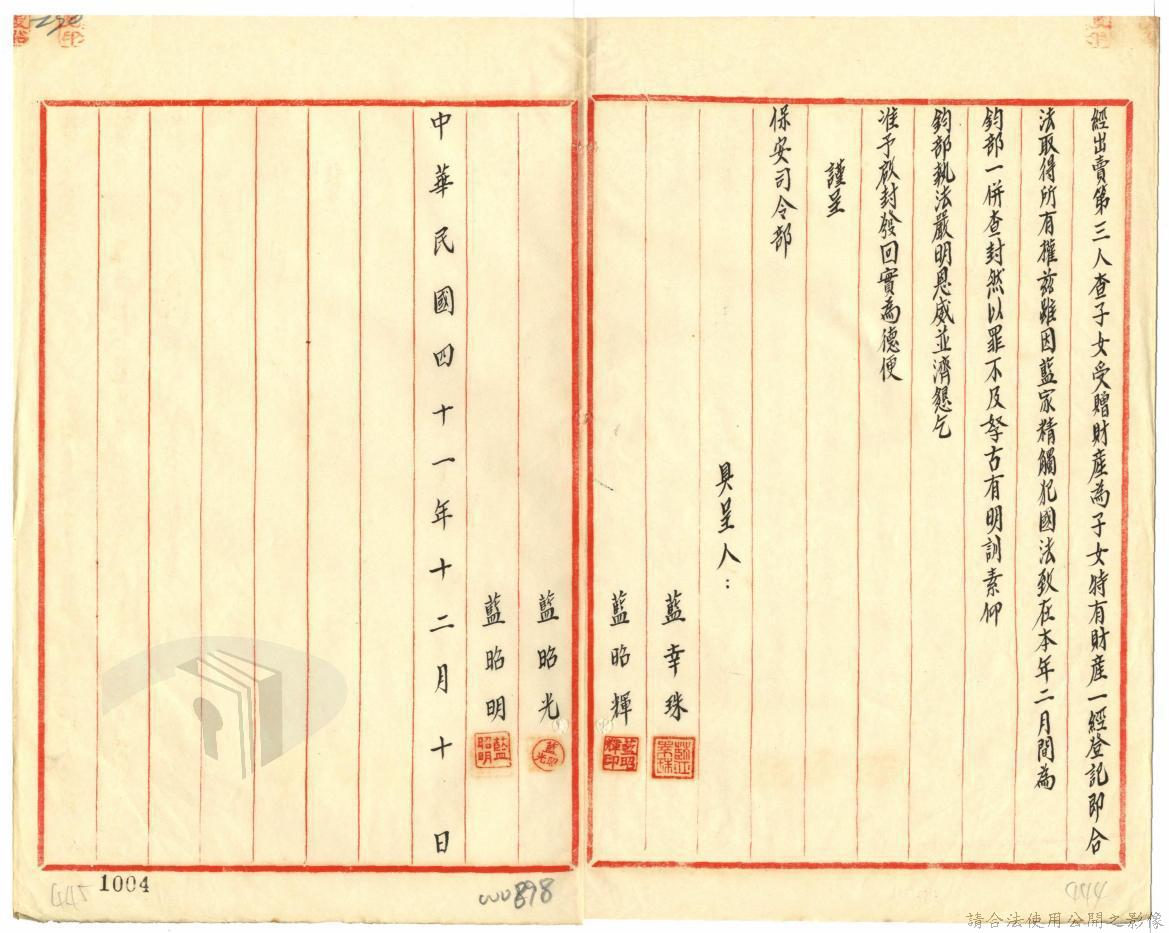 經出賣第三人查子女受贈財產為子女特有財產一經登記即合
法取得所有權茲雖因藍家精觸犯國法致在本年二月間為
鈞部一併查封然以罪不及孥古有明訓素仰
鈞部執法嚴明恩威並濟懇乞
准予啟封發回實為德便
謹呈
保安司令部
具呈人：
藍幸珠
藍昭輝
藍昭輝印
藍昭光
藍昭光
藍昭明
藍昭明
中華民國四十一年十二月十日
444
445
1004
000898
請合法使用公開之影像